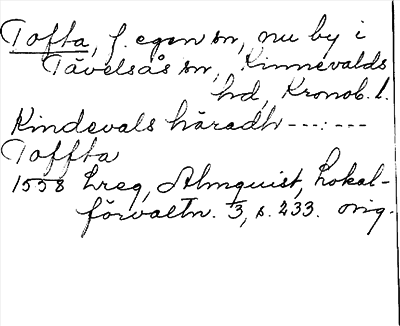 Tofta, f. egen sn, nu by i
Tävelsås sn, Kinnevalds
hd, Kronob. l.
Kindevals häradh ---:---
Toffta
1558 Lreg, Almquist, Lokal-
förvaltn. 3, s. 233. orig.